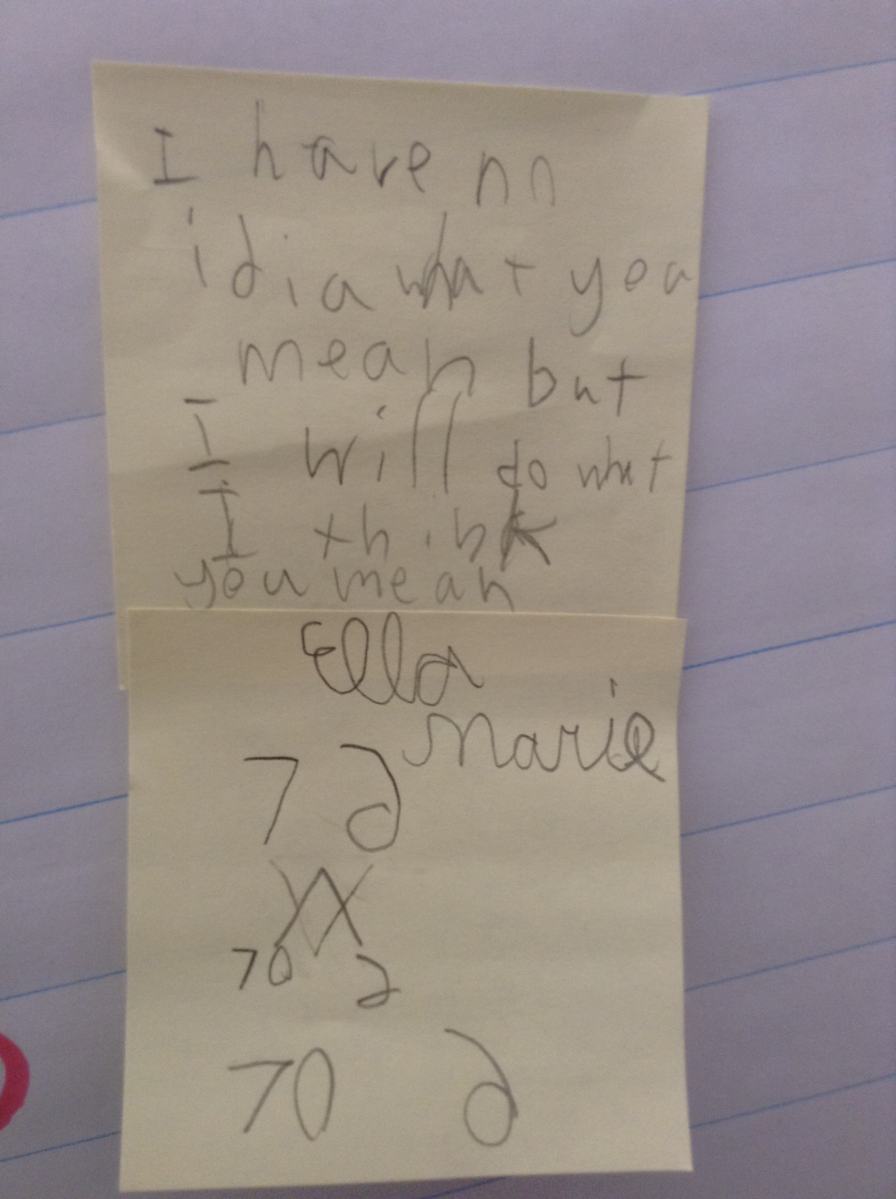 I have no
idia what you
mean but
I will do what
I think
you mean
Ella
Marie
72
70 2
70 2